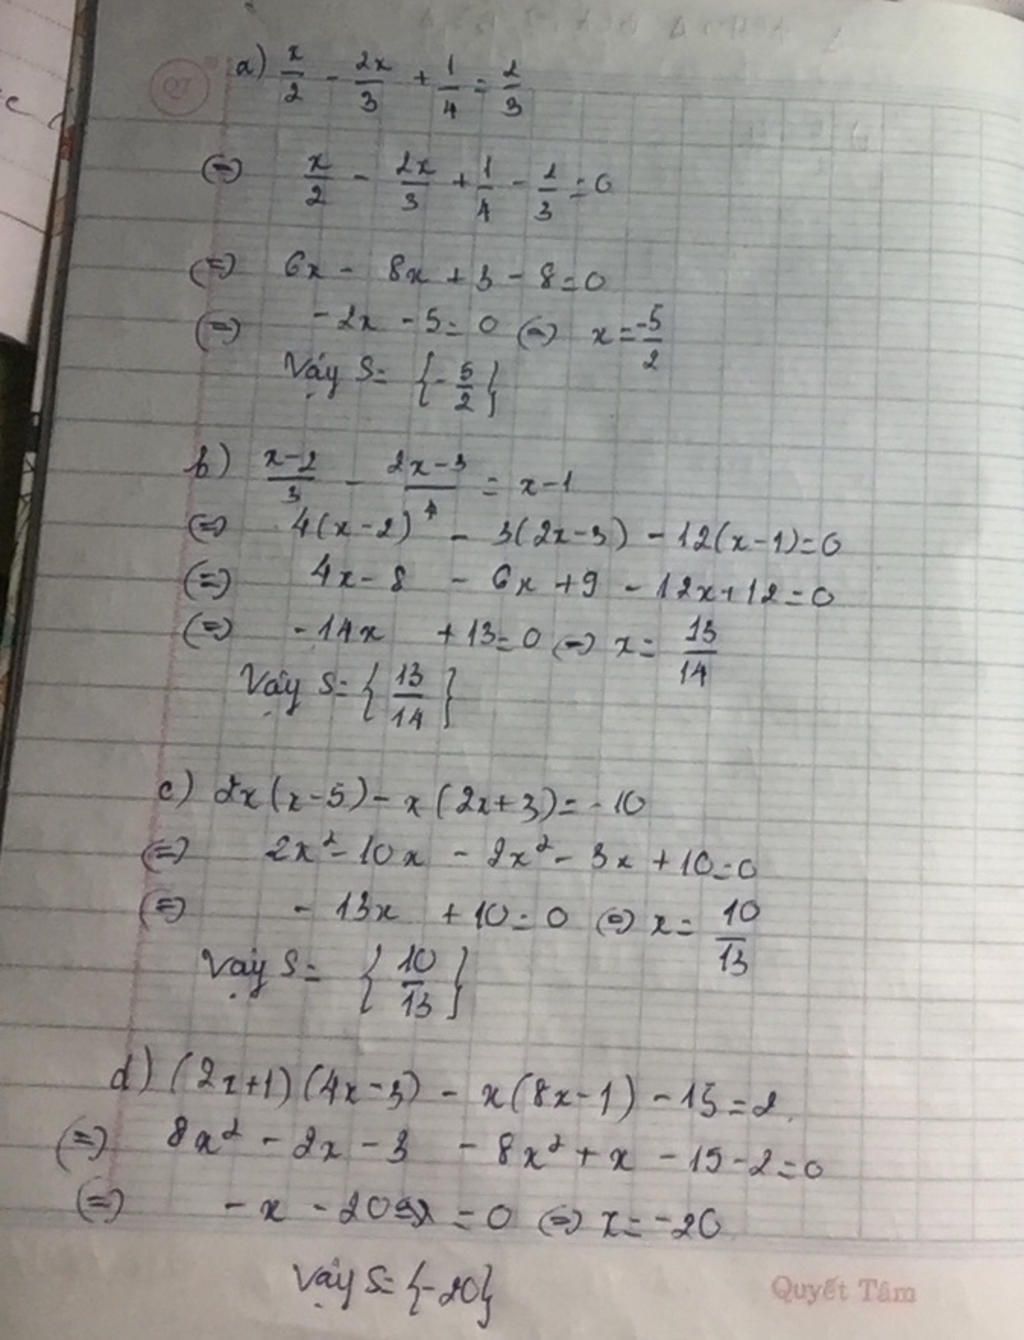 a) x/2 - 2x/3 + 1/4 = 2/3
(=) x/2 - 2x/3 + 1/4 - 2/3 = 0
(=) 6x - 8x + 3 - 8 = 0
(=) -2x - 5 = 0 (=) x = -5/2
Vậy S = {-5/2}
b) x-2/3 - 2x-3/4 = x-1
(=) 4(x-2) - 3(2x-3) - 12(x-1) = 0
(=) 4x - 8 - 6x + 9 - 12x + 12 = 0
(=) -14x + 13 = 0 (=) x = 13/14
Vậy S = {13/14}
c) 2x(x-5) - x(2x+3) = -10
(=) 2x² - 10x - 2x² - 3x + 10 = 0
(=) -13x + 10 = 0 (=) x = 10/13
Vậy S = {10/13}
d) (2x+1)(4x-3) - x(8x-1) - 15 = 2
(=) 8x² - 2x - 3 - 8x² + x - 15 - 2 = 0
(=) -x - 20 = 0 (=) x = -20
Vậy S = {-20}
Quyết Tâm